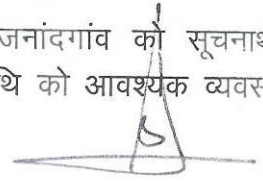 जनांदगांव को सूचनार्थ
थि को आवश्यक व्यवस